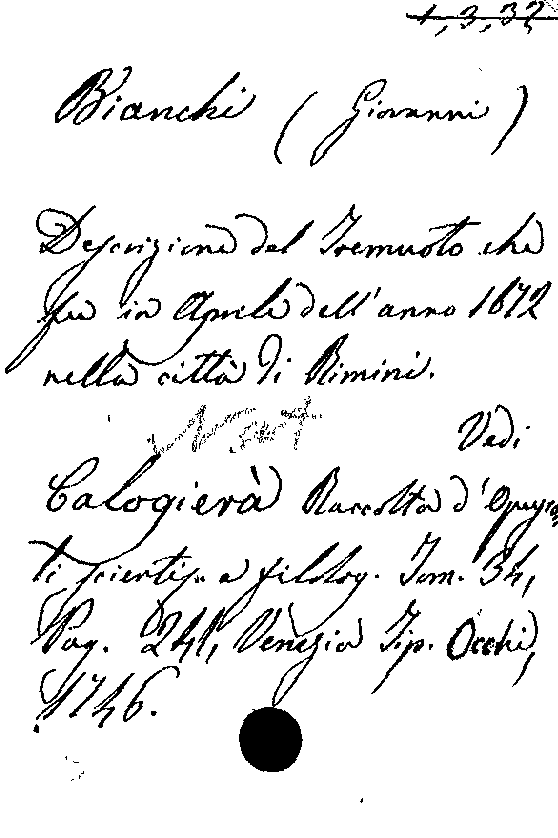 1, 3, 32
Bianchi (Giovanni)
Descrizione del Tremuoto che
fu in Aprile dell'anno 1672
nella città di Rimini.
Vedi
Calogierà Raccolta d'Opusco
li scientif. e filolog. Tom. 34,
Pag. 241, Venezia Tip. Occhi,
1746.